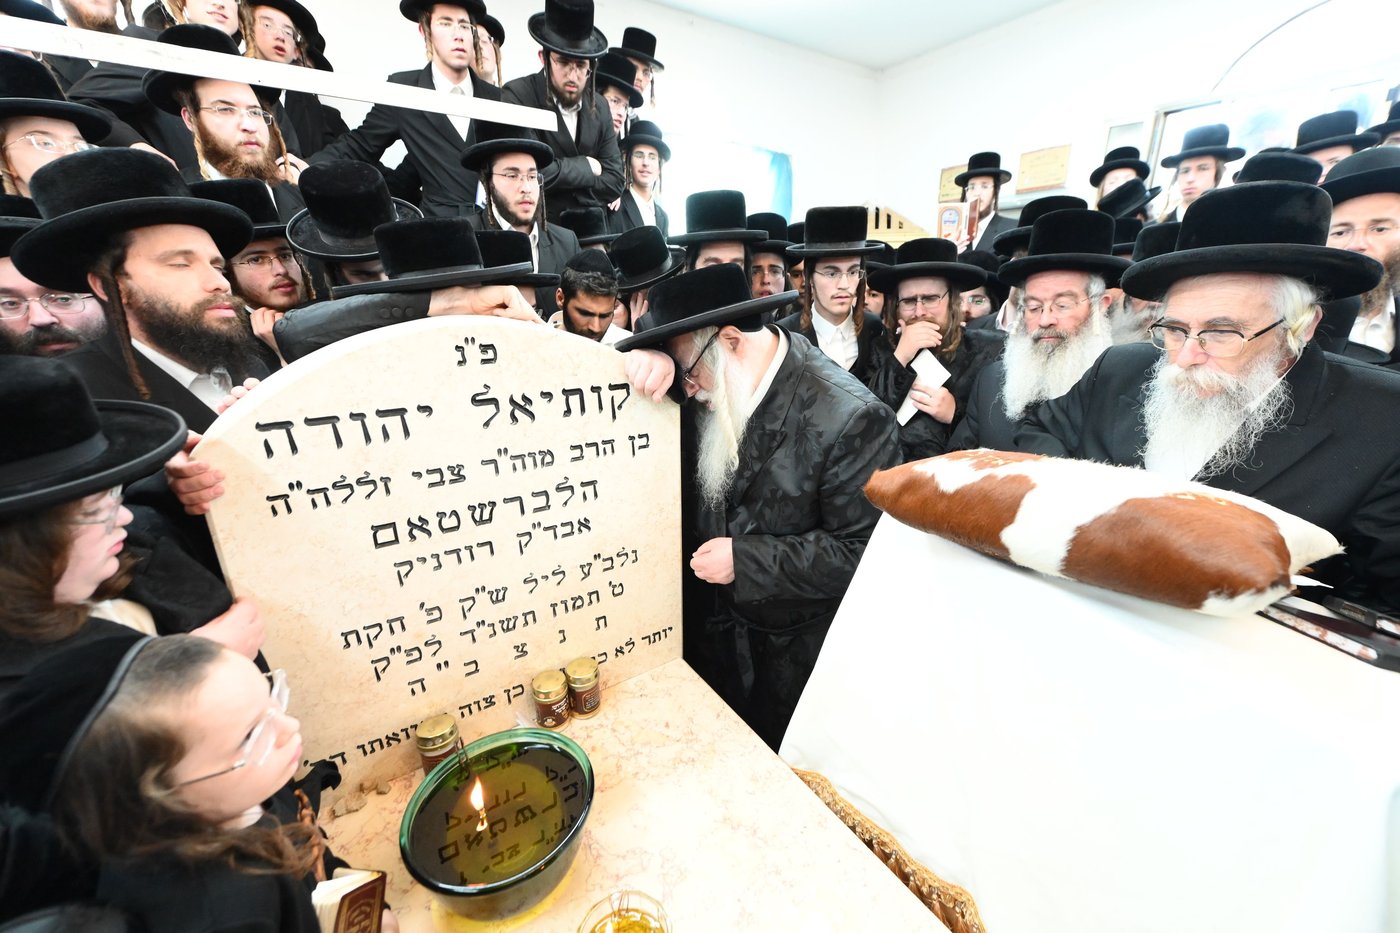 פ"נ
קותיאל יהודה
בן הרב מוה"ר צבי זללה"ה
הלברשטאם
אבד"ק רודניק
נלב"ע ליל ש"ק פ' חקת
ט' תמוז תשנ"ד לפ"ק
ת נ צ ב "ה
יותר לא כן צוה